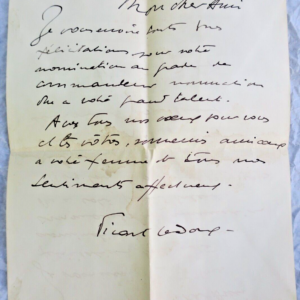 Mon cher Ami
Je vous envoie toutes mes
félicitations pour votre
nomination au grade de
commandeur nomination
due a votre grand talent.
Avec tous nos vœux pour vous
et les vôtres, souvenirs amicaux
a votre femme et tous nos
sentiments affectueux.
Picart Ledoux